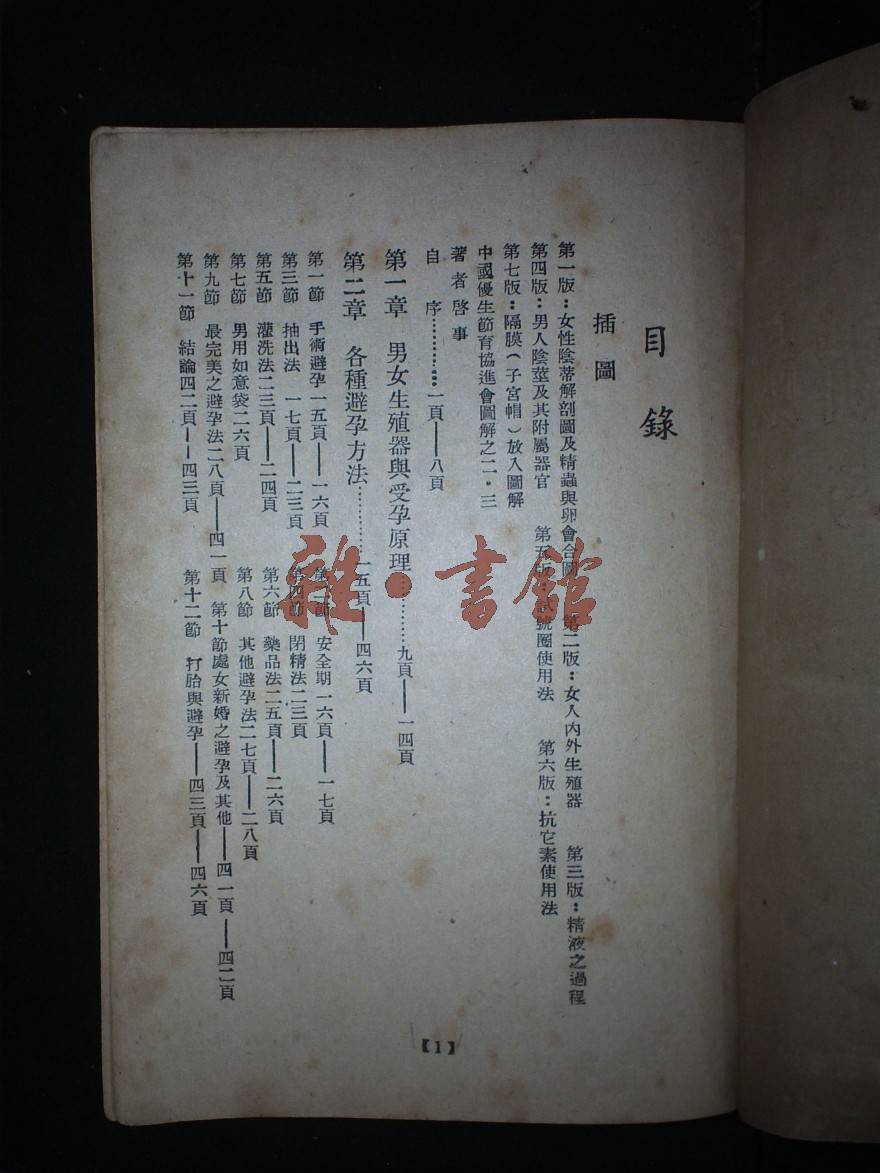 目錄
插圖
第一版：女性陰蒂解剖圖及精蟲與卵會合圖　第二版：女人內外生殖器　第三版：精液之過程
第四版：男人陰莖及其附屬器官　第五版：號圈使用法　第六版：抗它素使用法
第七版：隔膜（子宮帽）放入圖解
中國優生節育協進會圖解之二・三
著者啓事
自序…………一頁——八頁
第一章　男女生殖器與受孕原理…………九頁——一四頁
第二章　各種避孕方法…………一五頁——四六頁
第一節　手術避孕一五頁——一六頁　第二節　安全期一六頁——一七頁
第三節　抽出法　一七頁——二三頁　第四節　閉精法二三頁
第五節　灌洗法二三頁——二四頁　第六節　藥品法二五頁——二六頁
第七節　男用如意袋二六頁　第八節　其他避孕法二七頁——二八頁
第九節　最完美之避孕法二八頁——四一頁　第十節處女新婚之避孕及其他——四一頁——四二頁
第十一節　結論四二頁——四三頁　第十二節　打胎與避孕——四三頁——四六頁
【1】
雜・書館